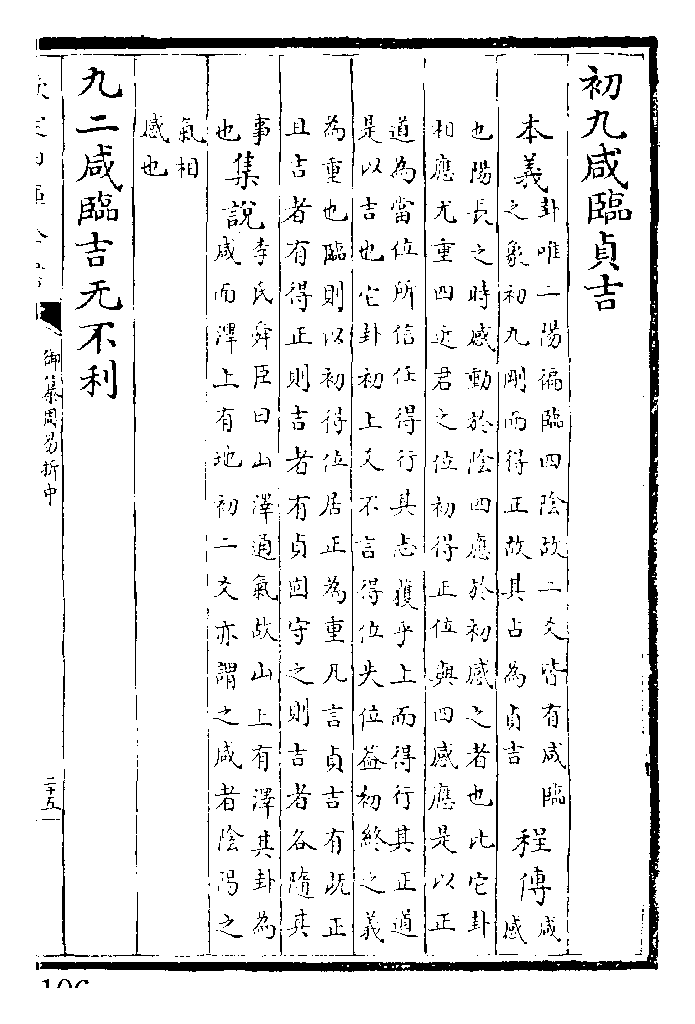 初九咸臨貞吉
本義
卦唯二陽徧臨四陰故二爻皆有咸臨
之象初九剛而得正故其占為貞吉
程傳
咸
感
也陽長之時感動於陰四應於初感之者也比它卦
相應尤重四近君之位初得正位與四感應是以正
道為當位所信任得行其志獲乎上而得行其正道
是以吉也它卦初上爻不言得位失位蓋初終之義
為重也臨則以初得位居正為重凡言貞吉有既正
且吉者有得正則吉者有貞固守之則吉者各隨其
事
也
集說
李氏舜臣曰山澤通氣故山上有澤其卦為
咸而澤上有地初二爻亦謂之咸者陰陽之
氣相
感也
九二咸臨吉无不利
御纂周易折中
二十五
106